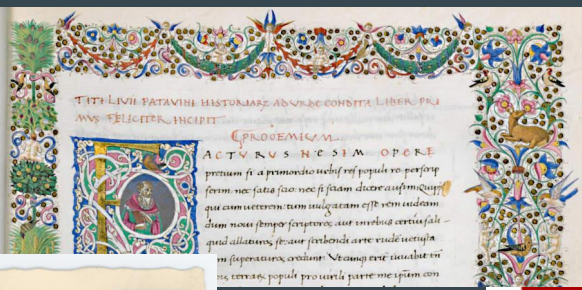 TITI LIVII PATAVINI HISTORIARṼ AD VRBE CONDITA LIBER PRI
MVS FELICITER INCIPIT
PROOEMIVM
ACTVRVS NE SIM OPERE
pretium si a primordio urbis res populi ro. perscrip
serim nec satis scio: nec si sciam dicere ausim. Quippe
qui cum ueterem: tum uulgatam esse rem uideam
dum noui semper scriptores aut in rebus certius ali
quid allaturos se: aut scribendi arte rudē uetusta
m superaturos credunt. Vtcunq; erit iuuabit tn̄
terrarꝫ populi pro uirili parte me ipsum con